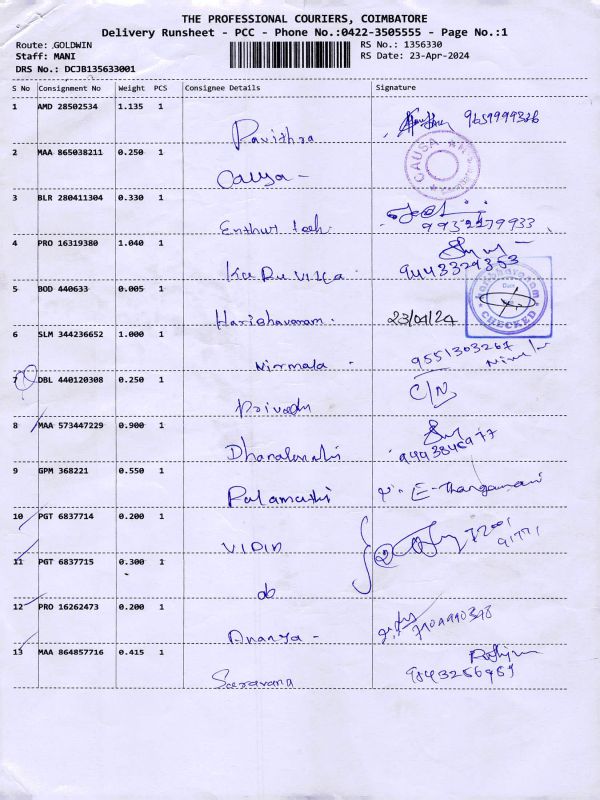 THE PROFESSIONAL COURIERS, COIMBATORE
Delivery Runsheet - PCC - Phone No.:0422-3505555 - Page No.:1
Route: GOLDWIN RS No.: 1356330
Staff: MANI RS Date: 23-Apr-2024
DRS No.: DCJB135633001
S No Consignment No Weight PCS Consignee Details Signature
1 AMD 28502534 1.135 1
Pavithra
2 MAA 865038211 0.250 1
CAUSA
Causa -
3 BLR 280411304 0.330 1
Enthut tech. 9932479933
4 PRO 16319380 1.040 1
9443329353
5 BOD 440633 0.005 1
Haribhavanam 23/04/24
CHECKED
6 SLM 344236652 1.000 1
Nirmala - 9551303267
7 DBL 440120308 0.250 1
C/N
8 MAA 573447229 0.900 1
9443846977
9 GPM 368221 0.550 1
E-Thangamani
10 PGT 6837714 0.200 1
VIPIN
11 PGT 6837715 0.300 1
do
12 PRO 16262473 0.200 1
Ananya -
13 MAA 864857716 0.415 1
Saravana 9843256459